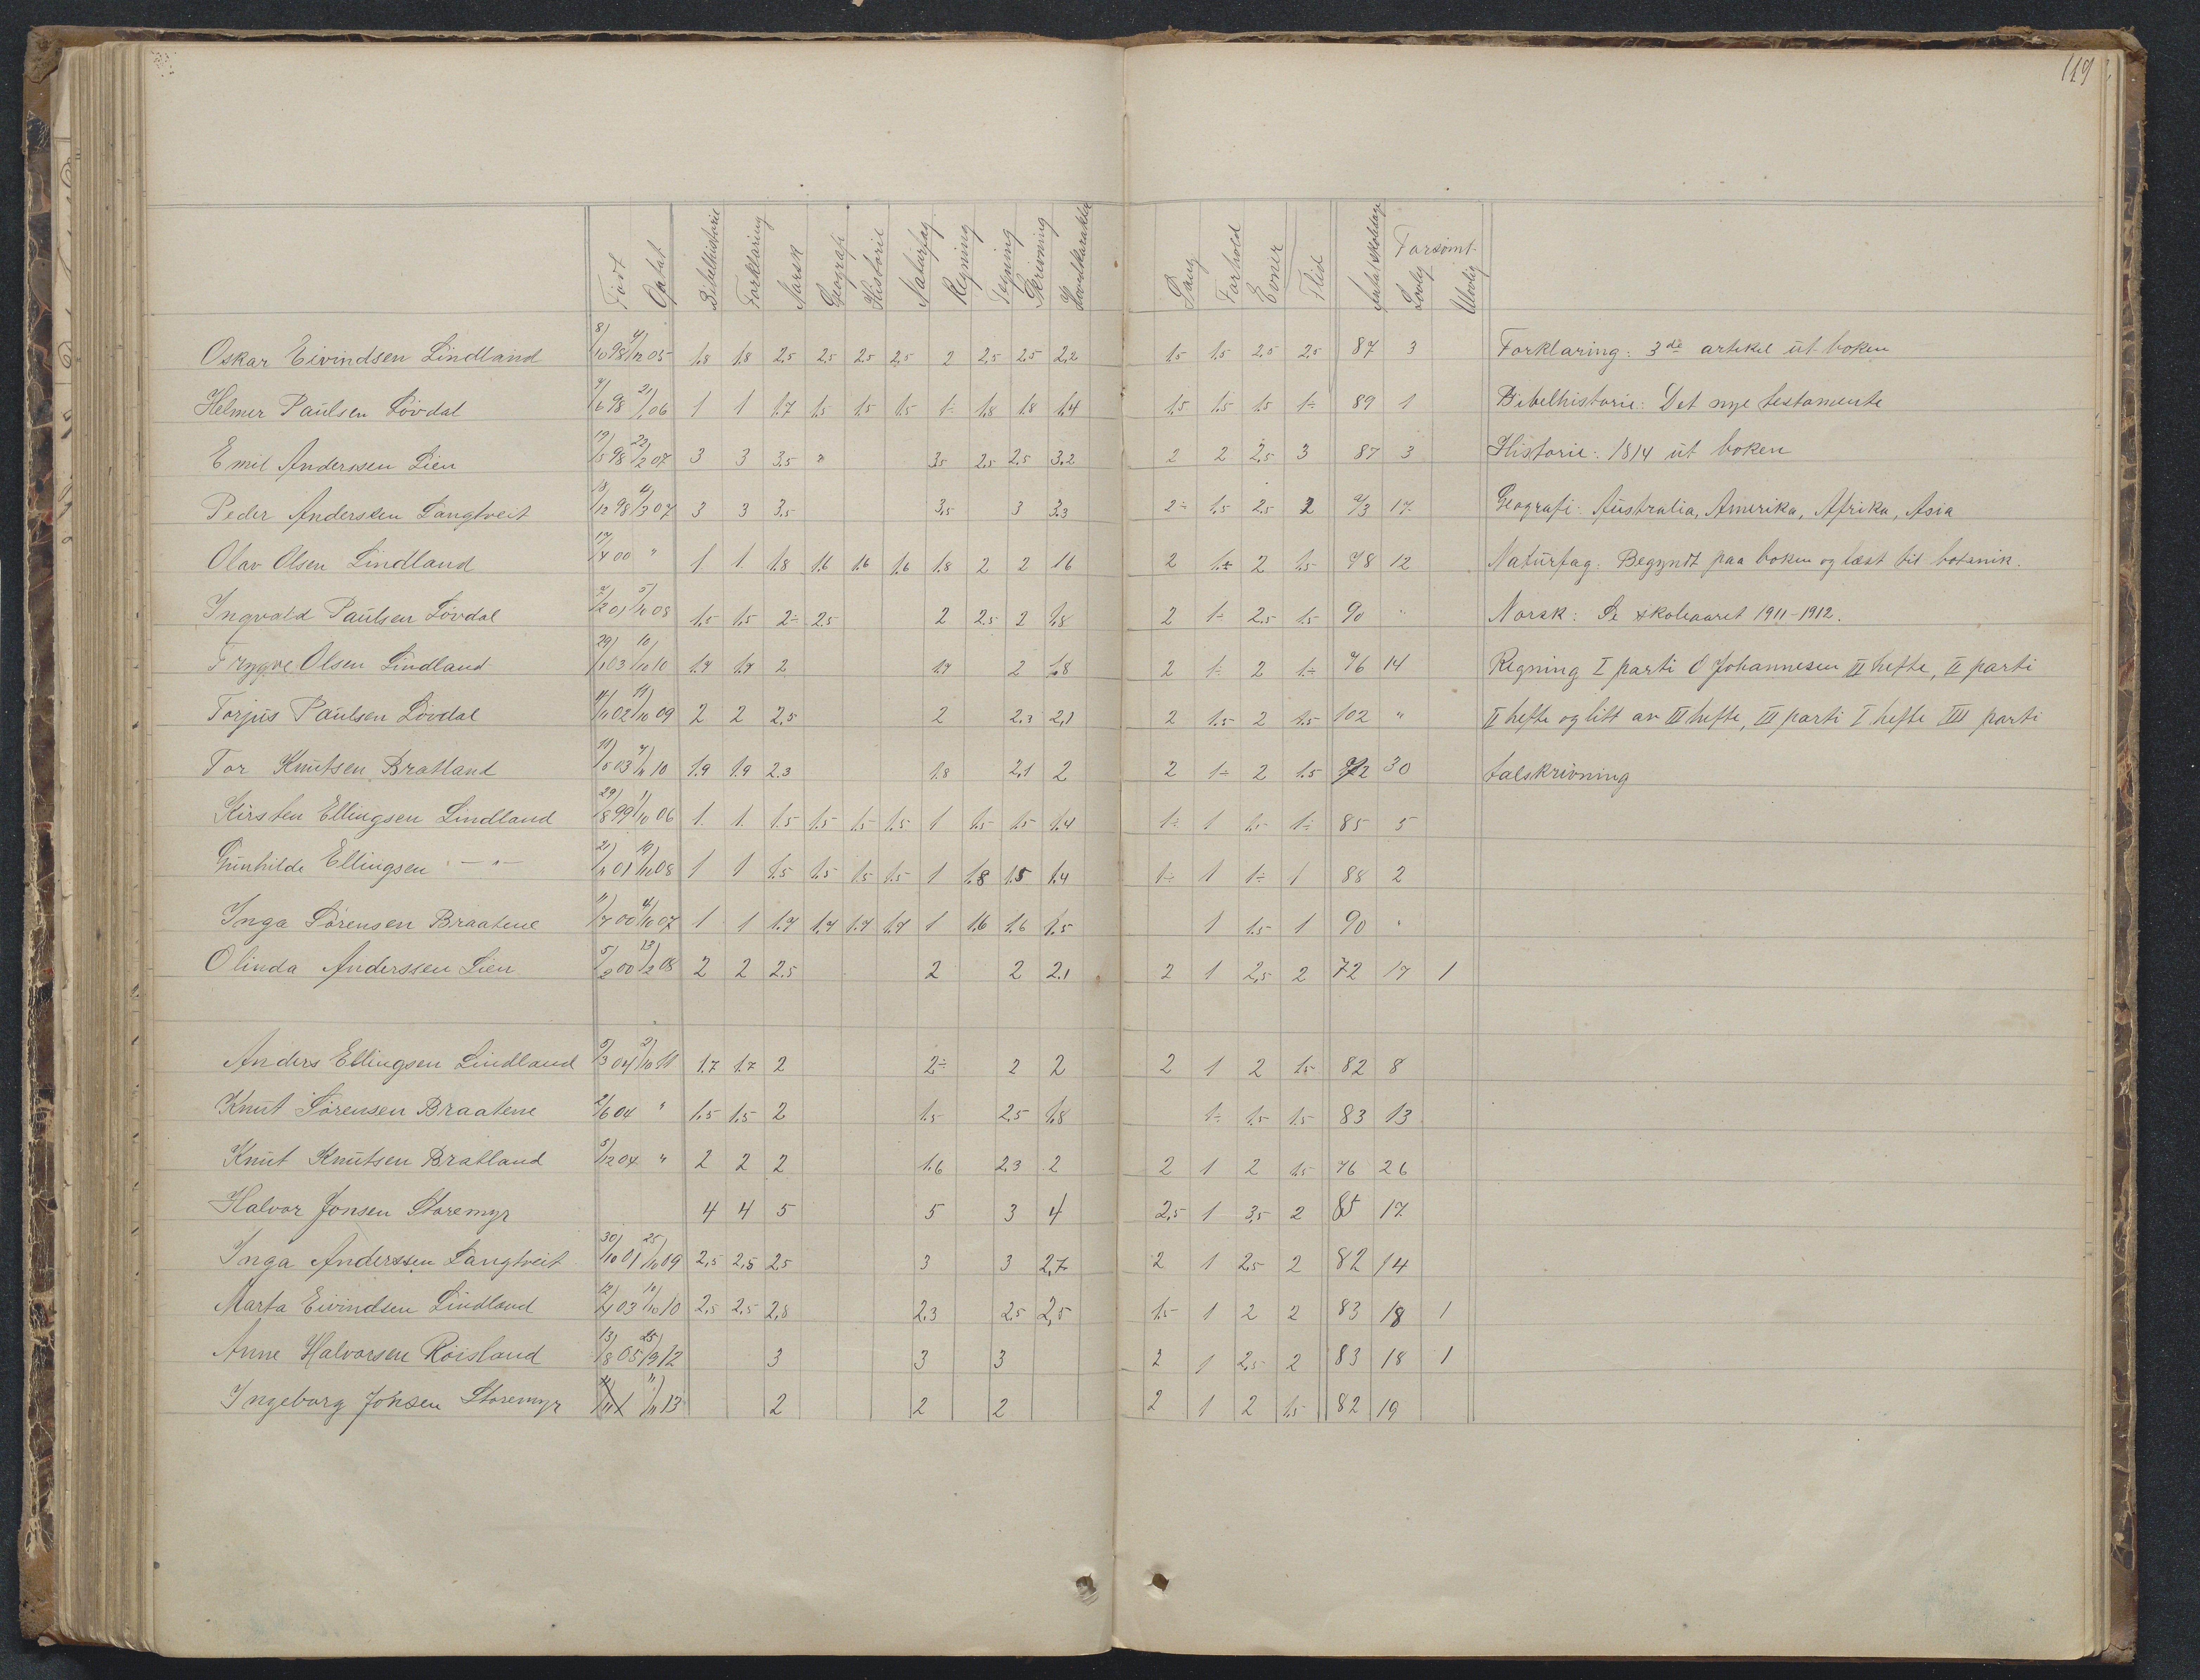 119
Født Optat Bibelhistorie Forklaring Norsk Geografi Historie Naturfag Regning Tegning Skrivning Hovedkarakter Sang Forhold Evner Flid Antal skoledage Forsømt Lovlig Ulovlig
Oskar Eivindsen Lindland 8/10 98 4/12 05 1.8 1.8 2.5 2.5 2.5 2.5 2 2.5 2.5 2.2 1.5 1.5 2.5 2.5 87 3 Forklaring: 3de artikel ut boken
Helmer Paulsen Løvdal 9/6 98 06 1 1 1.7 1.5 1.5 1.5 1÷ 1.8 1.8 1.4 1.5 1.5 1.5 1÷ 89 1 Bibelhistorie: Det nye testamente
Emil Anderssen Lien 19/5 98 22/2 07 3 3 3.5 " 3.5 2.5 2.5 3.2 2 2 2.5 3 87 3 Historie: 1814 ut boken
Peder Anderssen Langtveit 18/12 98 4/3 07 3 3 3.5 3.5 3 3.3 2÷ 1.5 2.5 2 93 17 Geografi: Australia, Amerika, Afrika, Asia
Olav Olsen Lindland 00 " 1 1 1.8 1.6 1.6 1.6 1.8 2 2 1.6 2 1÷ 2 1.5 78 12 Naturfag: Begyndt paa boken og læst til botanik.
Ingvald Paulsen Løvdal 01 08 1.5 1.5 2÷ 2.5 2 2.5 2 1.8 2 1÷ 2.5 1.5 90 " Norsk: Se skoleaaret 1911-1912.
Trygve Olsen Lindland 29/1 03 10/10 10 1.7 1.7 2 1.7 2 1.8 2 1÷ 2 1÷ 76 14 Regning I parti O Johannesen II hefte, II parti
Torjus Paulsen Løvdal 02 11/10 09 2 2 2.5 2 2.3 2,1 2 1.5 2 1.5 102 " II hefte og litt av III hefte, III parti I hefte III parti
Tor Knutsen Bratland 03 10 1.9 1.9 2.3 1.8 2,1 2 2 1÷ 2 1.5 72 30 talskrivning
Kirsten Ellingsen Lindland 29/8 99 1/10 06 1 1 1.5 1.5 1.5 1.5 1 1.5 1.5 1.4 1÷ 1 1.5 1÷ 85 5
Gunhilde Ellingsen - " - 01 08 1 1 1.5 1.5 1.5 1.5 1 1.8 1.5 1.4 1÷ 1 1÷ 1 88 2
Inga Sørensen Braatene 11/7 00 4/10 07 1 1 1.7 1.7 1.7 1.7 1 1.6 1.6 1.5 1 1.5 1 90 "
Olinda Anderssen Lien 5/2 00 13/2 08 2 2 2.5 2 2 2.1 2 1 2,5 2 72 17 1
Anders Ellingsen Lindland 5/3 04 2/10 11 1.7 1.7 2 2÷ 2 2 2 1 2 1.5 82 8
Knut Sørensen Braatene 2/6 04 " 1.5 1.5 2 1.5 2.5 1.8 1÷ 1.5 1.5 83 13
Knut Knutsen Bratland 5/12 04 " 2 2 2 1.6 2.3 2 2 1 2 1.5 76 26
Halvor Jonsen Storemyr 4 4 5 5 3 4 2,5 1 3,5 2 85 17
Inga Anderssen Langtveit 30/10 01 25/10 09 2,5 2,5 2.5 3 3 2,7 2 1 2.5 2 82 14
Marta Eivindsen Lindland 03 10/10 10 2.5 2.5 2,5 2.3 2.5 2,5 1.5 1 2 2 83 18 1
Anne Halvorsen Røisland 13/8 05 25/9 12 3 3 3 2 1 2.5 2 83 18 1
Ingeborg Jonsen Storemyr 11/11 13 2 2 2 2 1 2 1.5 82 19